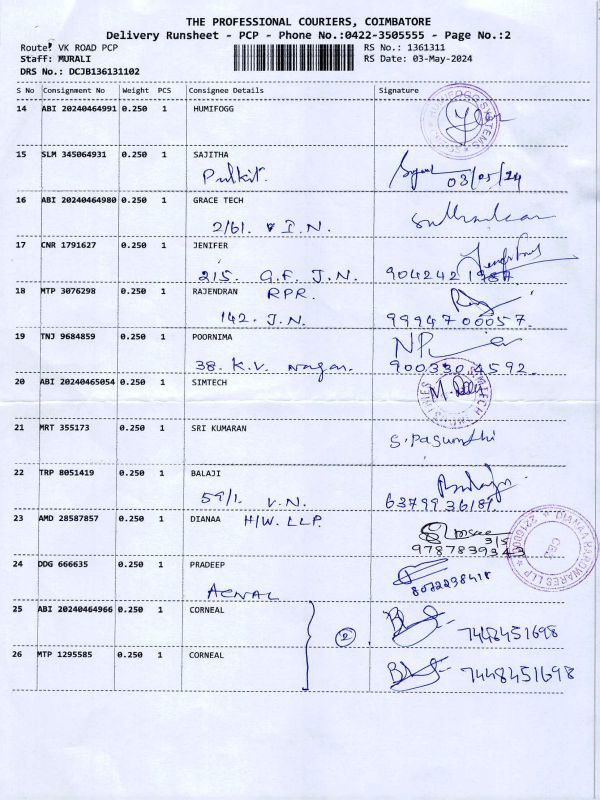 THE PROFESSIONAL COURIERS, COIMBATORE
Delivery Runsheet - PCP - Phone No.:0422-3505555 - Page No.:2
Route: VK ROAD PCP RS No.: 1361311
Staff: MURALI RS Date: 03-May-2024
DRS No.: DCJB136131102
S No Consignment No Weight PCS Consignee Details Signature
14 ABI 20240464991 0.250 1 HUMIFOGG
15 SLM 345064931 0.250 1 SAJITHA
Pulkit. 03/05/24
16 ABI 20240464980 0.250 1 GRACE TECH
2/61. I.N.
17 CNR 1791627 0.250 1 JENIFER
215. G.F. J.N. 904242
18 MTP 3076298 0.250 1 RAJENDRAN RPR.
142. J.N. 9994700057.
19 TNJ 9684859 0.250 1 POORNIMA
38. K.V. Nagar. 9003304592.
20 ABI 20240465054 0.250 1 SIMTECH
21 MRT 355173 0.250 1 SRI KUMARAN
22 TRP 8051419 0.250 1 BALAJI
59/1. V.N.
23 AMD 28587857 0.250 1 DIANAA H/W. LLP.
3/5
9787839343
24 DDG 666635 0.250 1 PRADEEP
25 ABI 20240464966 0.250 1 CORNEAL 2 7448451698
26 MTP 1295585 0.250 1 CORNEAL 7448451698